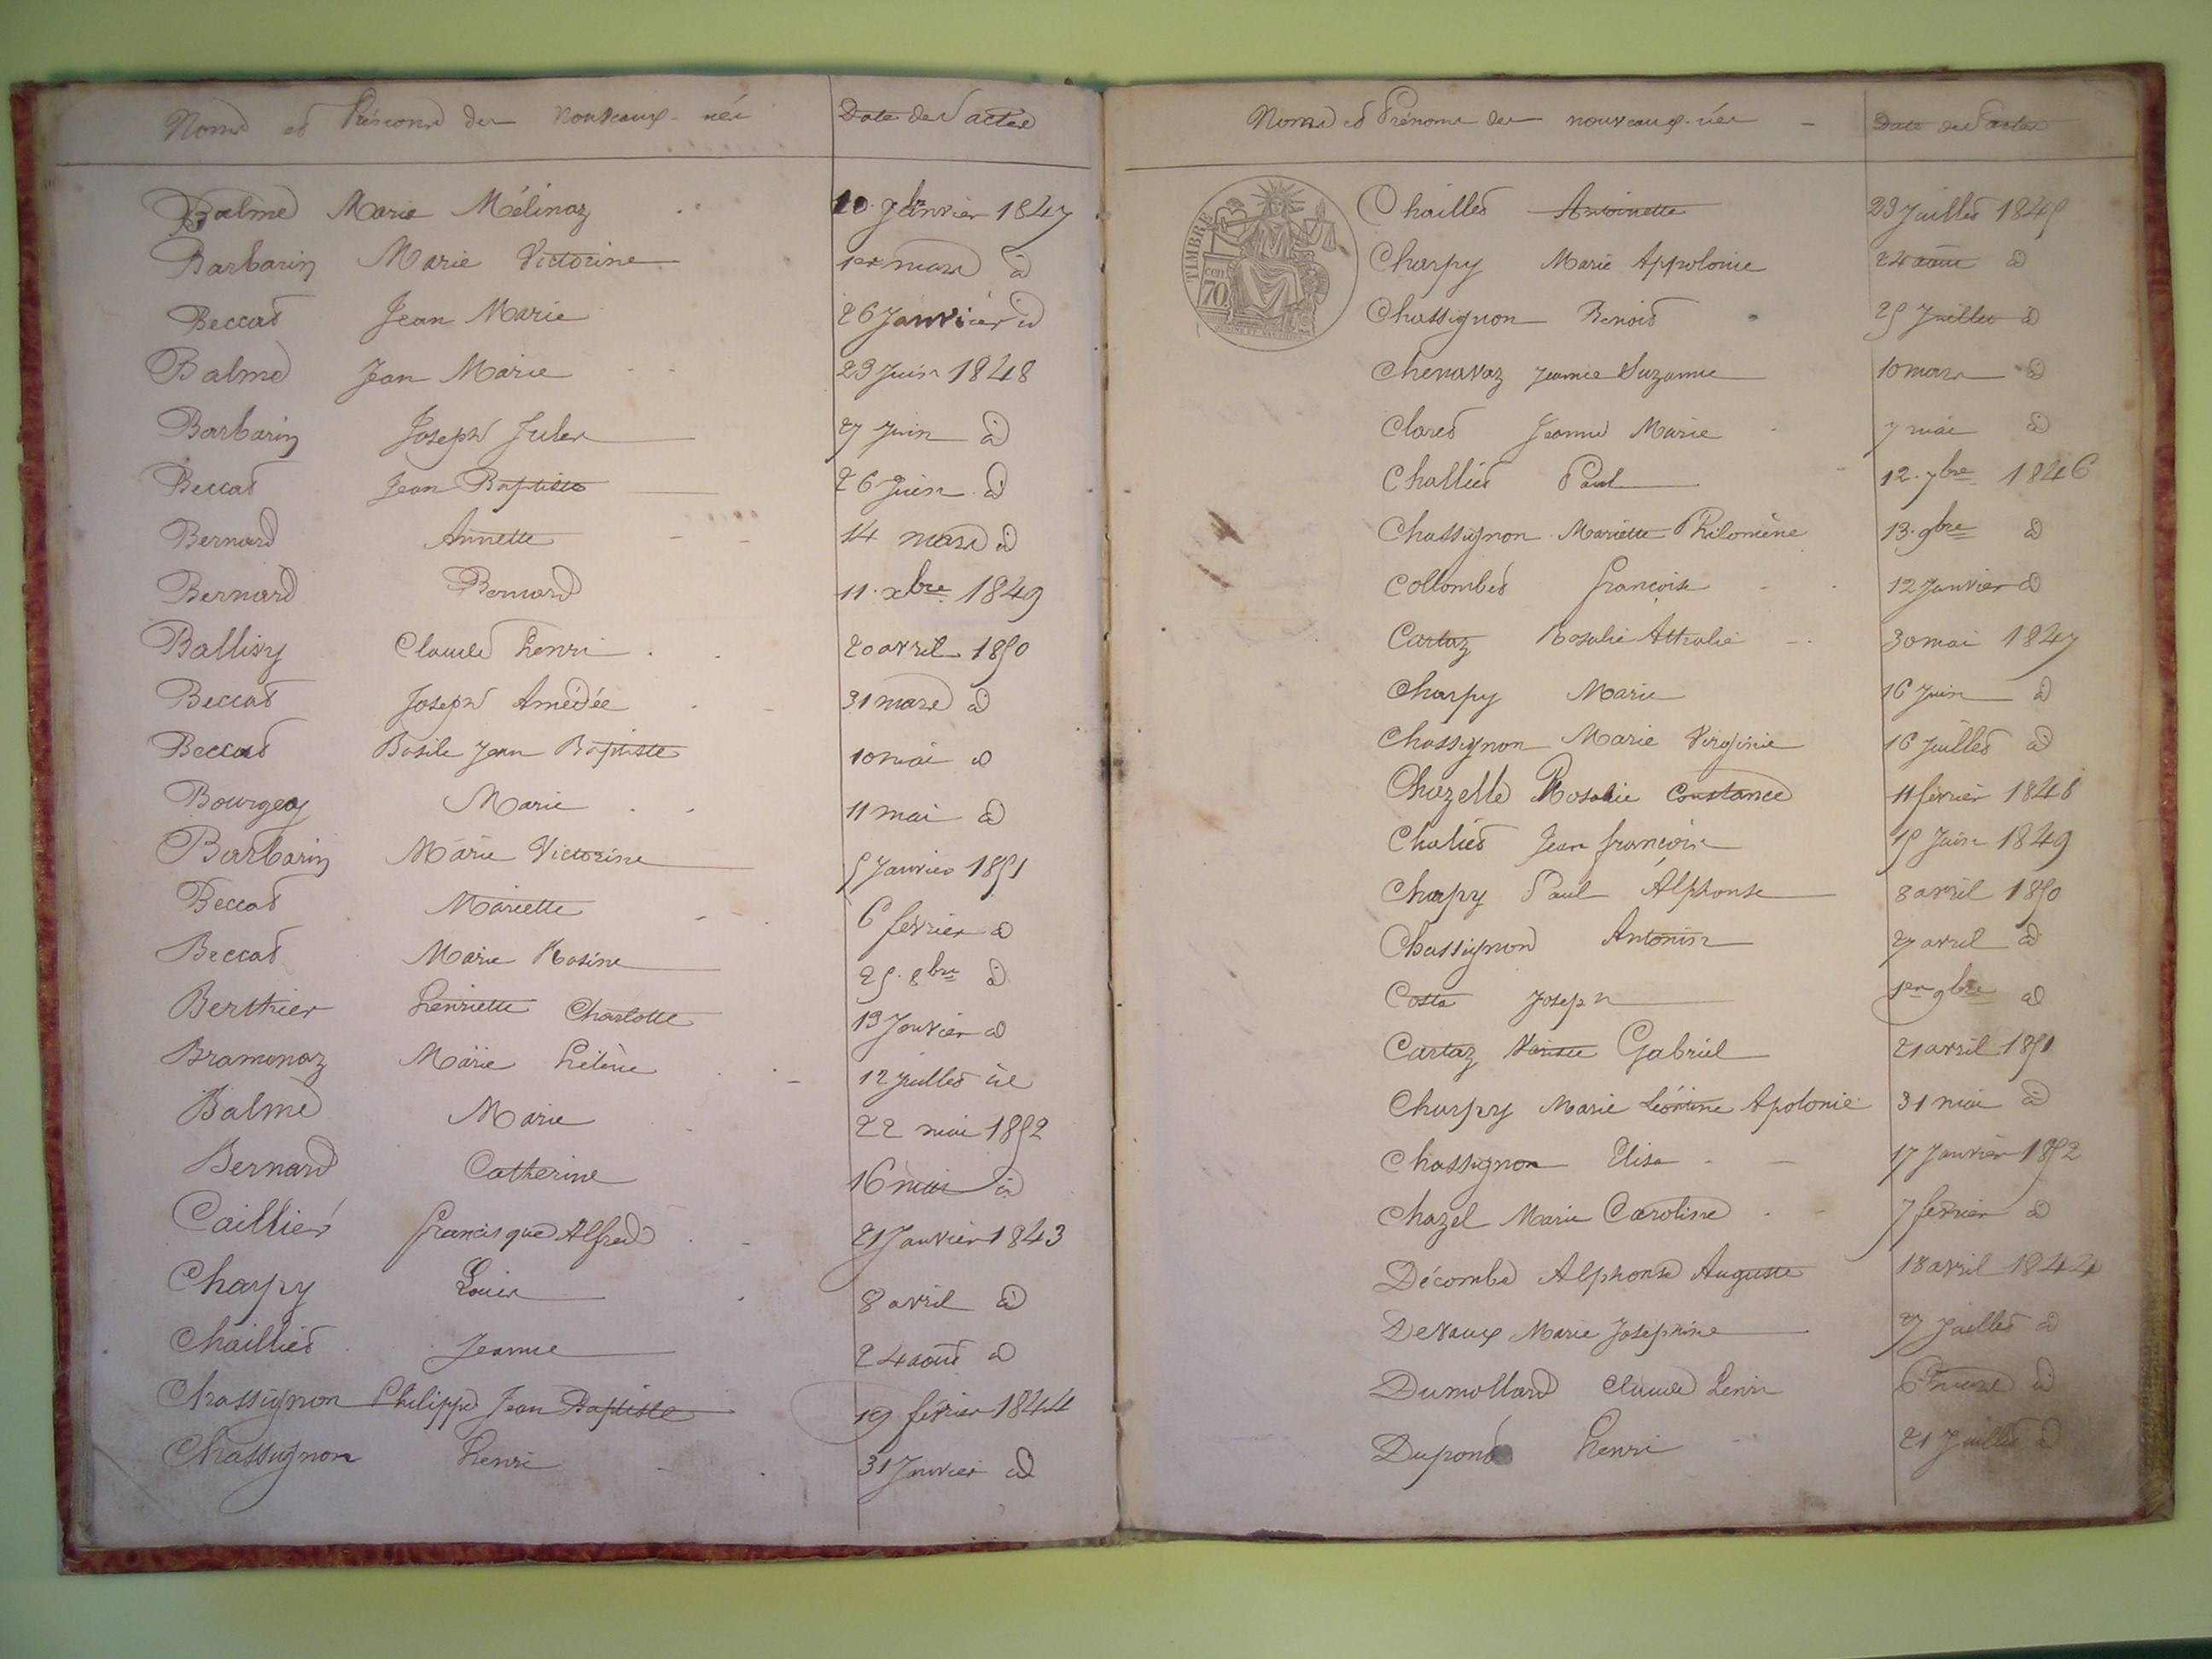 Noms et Prénoms des nouveaux-nés Date des actes
Balme Marie Mélinaz 10 janvier 1847
Barbarin Marie Victorine 1er mars id
Beccat Jean Marie 26 Janvier id
Balme Jean Marie 23 Juin 1848
Barbarin Joseph Jules 27 Juin id
Beccat Jean Baptiste 26 Juin id
Bernard Annette 14 mars id
Bernard Bernard 11 xbre 1849
Ballivy Claude henri 20 avril 1850
Beccat Joseph Amédée 31 mars id
Beccat Basile Jean Baptiste 10 mai id
Bourgey Marie 11 mai id
Barbarin Marie Victorine 5 Janvier 1851
Beccat Mariette 6 février id
Beccat Marie Rosine 25. 8bre id
Berthier henriette Charlotte 13 Janvier id
Bramonaz Marie hélène 12 Juillet id
Balme Marie 22 mai 1852
Bernard Catherine 16 mai id
Caillier francisque Alfred 21 Janvier 1843
Charpy Louis 8 avril id
Chailliet Jeanne 24 août id
Chassignon Philippe Jean Baptiste 19 février 1844
Chassignon henri 31 Janvier id
Noms et Prénoms des nouveaux-nés Date des actes
TIMBRE
70
Chaillet Antoinette 23 Juillet 1845
Charpy Marie Appolonie 24 août id
Chassignon Benoit 25 Juillet id
Chenavaz Jeanne Suzanne 10 mars id
Claret Jeanne Marie 7 mai id
Challiet Paul 12. 7bre 1846
Chassignon Mariette Philomène 13. 9bre id
Collombet françoise 12 Janvier id
Cartaz Rosalie Athalie 30 mai 1847
Charpy Marie 16 Juin id
Chassignon Marie Virginie 16 Juillet id
Chazelle Rosalie Constance 11 février 1848
Chaliet Jean françois 15 Juin 1849
Charpy Paul Alphonse 8 avril 1850
Chassignon Antonin 27 avril id
Costa Joseph 1er 9bre id
Cartaz Gabriel 21 avril 1851
Charpy Marie Léontine Apolonie 31 mai id
Chassignon Elisa 17 Janvier 1852
Chazel Marie Caroline 7 février id
Décombe Alphonse Auguste 18 avril 1844
Devaux Marie Joséphine 27 Juillet id
Dumollard Claude henri 6 mars id
Dupont henri 21 Juillet id